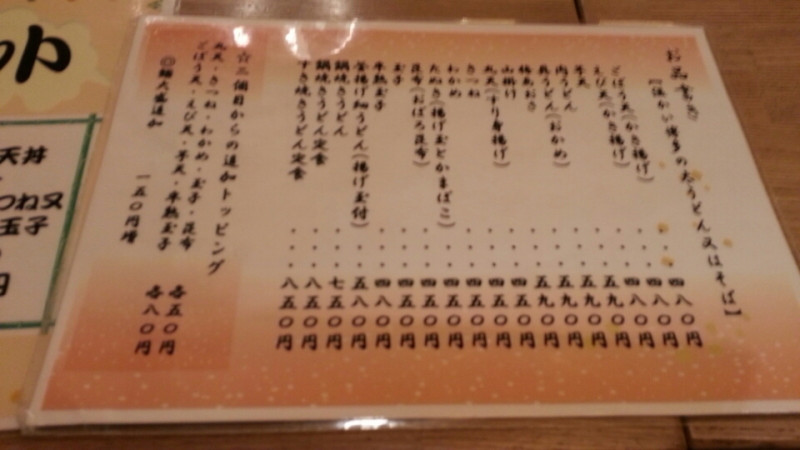 お品書き
【温かい博多の丸うどん又はそば】
ごぼう天(かき揚げ)・・・四八〇円
えび天(かき揚げ)・・・四八〇円
芋天・・・四八〇円
肉うどん・・・五九〇円
具うどん(おかめ)・・・五九〇円
梅あおさ
山掛け
丸天(すり身揚げ)
きつね・・・四五〇円
わかめ・・・四五〇円
たぬき(揚げ玉とかまぼこ)・・・四五〇円
昆布(おぼろ昆布)・・・四五〇円
玉子・・・四五〇円
半熟玉子・・・四八〇円
釜揚げ細うどん(揚げ玉付)・・・五八〇円
鍋焼きうどん・・・七五〇円
鍋焼きうどん定食・・・八五〇円
すき焼きうどん定食・・・八五〇円
☆二個目からの追加トッピング
丸天・きつね・わかめ・玉子・昆布 各五〇円
ごぼう天・えび天・芋天・半熟玉子 各八〇円
◎麺大盛追加 一五〇円増
天丼
つね又
玉子
円